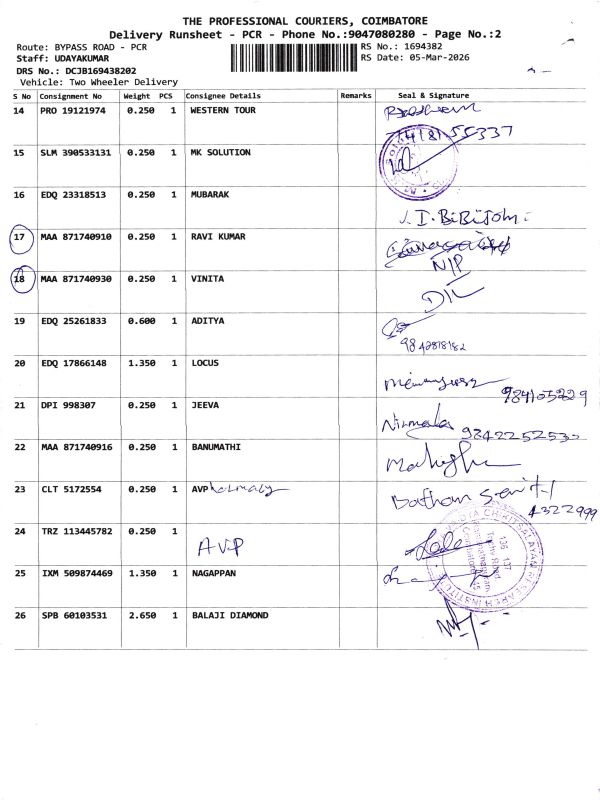 THE PROFESSIONAL COURIERS, COIMBATORE
Delivery Runsheet - PCR - Phone No.:9047080280 - Page No.:2
Route: BYPASS ROAD - PCR RS No.: 1694382
Staff: UDAYAKUMAR RS Date: 05-Mar-2026
DRS No.: DCJB169438202
Vehicle: Two Wheeler Delivery
S No Consignment No Weight PCS Consignee Details Remarks Seal & Signature
14 PRO 19121974 0.250 1 WESTERN TOUR
15 SLM 390533131 0.250 1 MK SOLUTION
16 EDQ 23318513 0.250 1 MUBARAK
17 MAA 871740910 0.250 1 RAVI KUMAR
N/P
18 MAA 871740930 0.250 1 VINITA
D/L
19 EDQ 25261833 0.600 1 ADITYA
20 EDQ 17866148 1.350 1 LOCUS
21 DPI 998307 0.250 1 JEEVA
Nirmala
22 MAA 871740916 0.250 1 BANUMATHI
23 CLT 5172554 0.250 1 AVP
4322999
24 TRZ 113445782 0.250 1
AVP
25 IXM 509874469 1.350 1 NAGAPPAN
26 SPB 60103531 2.650 1 BALAJI DIAMOND